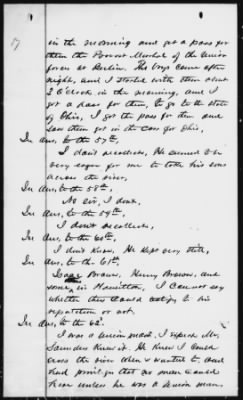 in the morning and get a pass for
them the Provost Marshal of the Union
forces at Berlin. The boys came after
night, and I started with them about
2 o'clock in the morning, and I
got a pass for them, to go to the State
of Ohio, I got the pass for them and
saw them get in the cars for Ohio,
In Ans, to the 57th,
I don't recollect, He seemed to be
very eager for me to take his sons
across the river,
In Ans, to the 58th,
No sir, I don't,
In Ans, to the 59th,
I don't recollect,
In Ans, to the 60th,
I don't know, He kept very still,
In Ans, to the 61st,
Isaac Brown, Henry Brown, and
some in Hamilton, I cannot say
whether they could testify to his
reputation or not.
In Ans, to the 62
I was a Union man, I expect Mr.
Saunders knew it. He knew I could
cross the river when I wanted to and
had privilege that no man could
have unless he was a Union man.